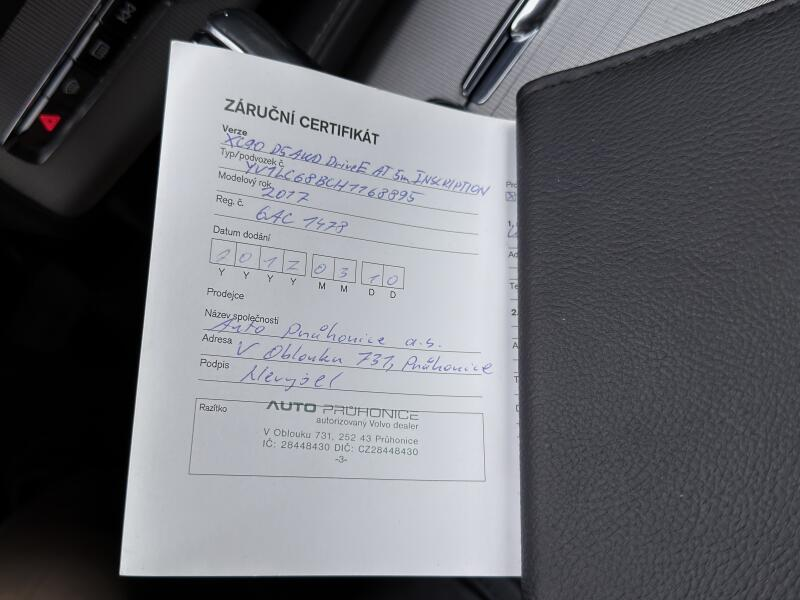 ZÁRUČNÍ CERTIFIKÁT
Verze
XC90 D5 AWD DrivE AT 5m INSCRIPTION
Typ/podvozek č.
YV1LC68BCH1168895
Modelový rok
2017
Reg. č.
6AC 1478
Datum dodání
2017 03 10
Y Y Y Y M M D D
Prodejce
Název společnosti
Auto Průhonice a.s.
Adresa
V Oblouku 731, Průhonice
Podpis
Razítko
AUTO PRŮHONICE
autorizovaný Volvo dealer
V Oblouku 731, 252 43 Průhonice
IČ: 28448430 DIČ: CZ28448430
-3-